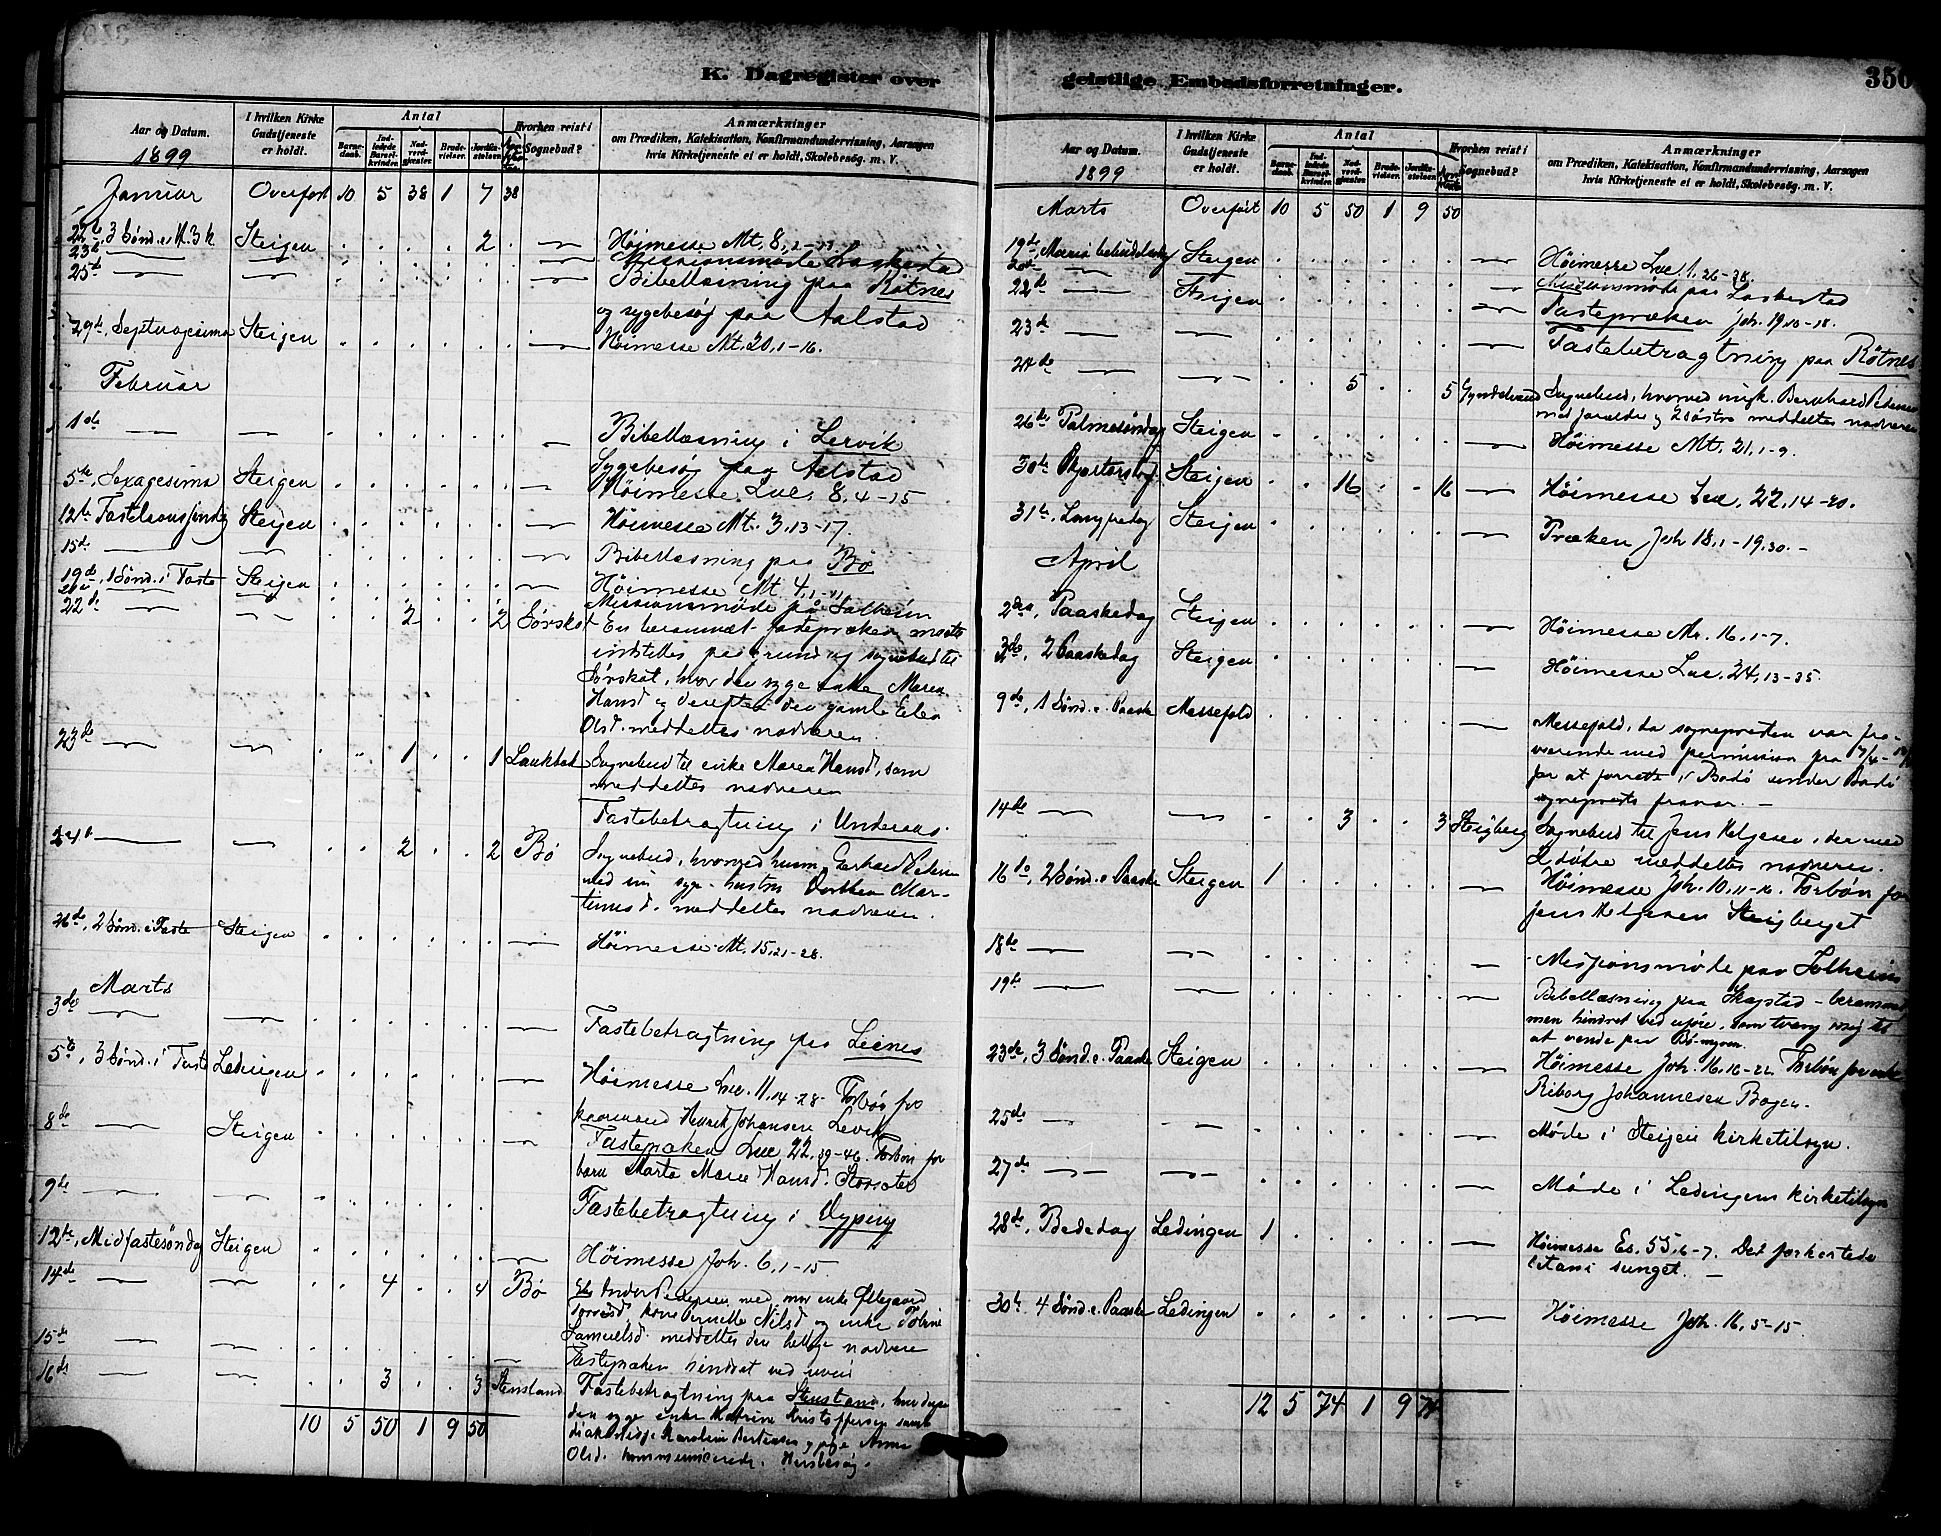 K. Dagregister over
geistlige Embedsforretninger.
350
Aar og Datum.
1899
I hvilken Kirke Gudstjeneste er holdt.
Antal
Barnedaab.
Indledede Barselkvinder.
Nadverdgjæster.
Brudevielser.
Jordfæstelser.
Hvorhen reist i Sognebud?
Anmærkninger
om Prædiken, Katekisation, Konfirmandundervisning, Aarsagen
hvis Kirketjeneste ei er holdt, Skolebesög. m. V.
Januar Overført 10 5 38 1 7 38
22de, 3 Sønd. e. H. 3 K Steigen 2 Høimesse Mt. 8,
23de Missionsmøde Laskestad
25de Bibellæsning paa Røtnes
og sygebesøg paa Aalstad
29de, Septuagesima Steigen Høimesse Mt. 20, 1-16.
Februar
1ste Bibellæsning i Lervik
Sygebesøg paa Aalstad
5te, Sexagesima Steigen Høimesse Luc. 8, 4-15
12te Fastelavnssøndag Steigen Høimesse Mt. 3, 13-17.
15de Bibellæsning paa Bø
19de, 1 Sønd. i Faste Steigen Høimesse Mt. 4, 1-11
Missionsmøde på Solheim
22de 2 2 Sørskot En berammet fastepræken maatte
indstilles på grund af sognebud til
Sørskot, hvor den syge enke Maren
Hansd. og derefter den gamle
Olsd. meddeltes nadveren.
23de 1 1 Laukbak Sognebud til enke Maren Hansd., som
meddeltes nadveren
Fastebetragtning i Underaas.
24de 2 2 Bø Sognebud, hvorved husm. Gerhard Peders
med sin syge hustru Dorthea Mar-
tinusd. meddeltes nadveren.
26de, 2 Sønd. i Faste Steigen Høimesse Mt. 15, 21-28.
Marts
3de Fastebetragtning paa Leines
5te, 3 Sønd. i Faste Ledingen Høimesse Luc. 11, 14-28. Forbøn for
Henrik Johansen Lervik
8de Steigen Fastepræken Luc. 22, 39-46. Forbøn for
barn Marta Marie Hansd.
9de Fastebetragtning i
12te, Midfastesøndag Steigen Høimesse Joh. 6, 1-15.
14de 4 4 Bø Pedersen med mor enke
kone Pernelle Nilsd. og enke
Samuelsd. meddeltes den hellige nadvere
15de Fastepræken hindret ved uveir
16de 3 3 Stensland Fastebetragtning paa Stensland, hvor
den syge enke Katrine Kristoffersen samt
Karoline og pige Anne
Olsd. kommunicerede. Husbesøg.
10 5 50 1 9 50
Aar og Datum.
1899
I hvilken Kirke Gudstjeneste er holdt.
Antal
Barnedaab.
Indledede Barselkvinder.
Nadverdgjæster.
Brudevielser.
Jordfæstelser.
Hvorhen reist i Sognebud?
Anmærkninger
om Prædiken, Katekisation, Konfirmandundervisning, Aarsagen
hvis Kirketjeneste ei er holdt, Skolebesög. m. V.
Marts Overført 10 5 50 1 9 50
19de, Mariæ bebudelsesdag Steigen Høimesse Luc. 1, 26-38.
20de Missionsmøde paa Laskestad
22de Steigen Fastepræken Joh. 19,
23de Fastebetragtning paa Røtnes
24de 5 5 Sognebud, hvorved ungk. Bernhard Pedersen
med forældre og 2 søstre meddeltes nadveren
26de Palmesøndag Steigen Høimesse Mt. 21, 1-9.
30te Skjærtorsdag Steigen 16 16 Høimesse Luc. 22, 14-20.
31te, Langfredag Steigen Præken Joh 18, 1-19, 30.-
April
2den, Paaskedag Steigen Høimesse Mr. 16, 1-7.
3de, 2 Paaskedag Steigen Høimesse Luc. 24, 13-35.
9de, 1 Sønd. e. Paaske Messefald Messefald, da sognepresten var fra-
værende med permission fra
for at forrette i Bodø under Bodø
sogneprests fravær. -
14de 3 3 Steigberg Sognebud til Jens Helgesen, der med
2 døtre meddeltes nadveren.
16de, 2 Sønd. e. Paaske Steigen 1 Høimesse Joh. 10, 11-16. Forbøn for
Jens Helgesen Steigberget
18de Missionsmøde paa Solheim
19de Bibellæsning paa Skagstad - berammet
men hindret ved uføre, som tvang mig til
at vende paa Bø-myren.
23de, 3 Sønd. e. Paaske Steigen Høimesse Joh. 16, 16-22 Forbøn for enke
Riborg Johannesen Bogen.
25de Møde i Steigen kirketilsyn.
27de Møde i Ledingens kirketilsyn
28de, Bededag Ledingen 1 Høimesse Es. 55, 6-7. Det forkortede
litani sunget. -
30te 4 Sønd. e. Paaske Ledingen Høimesse Joh. 16, 5-15.
12 5 74 1 9 74